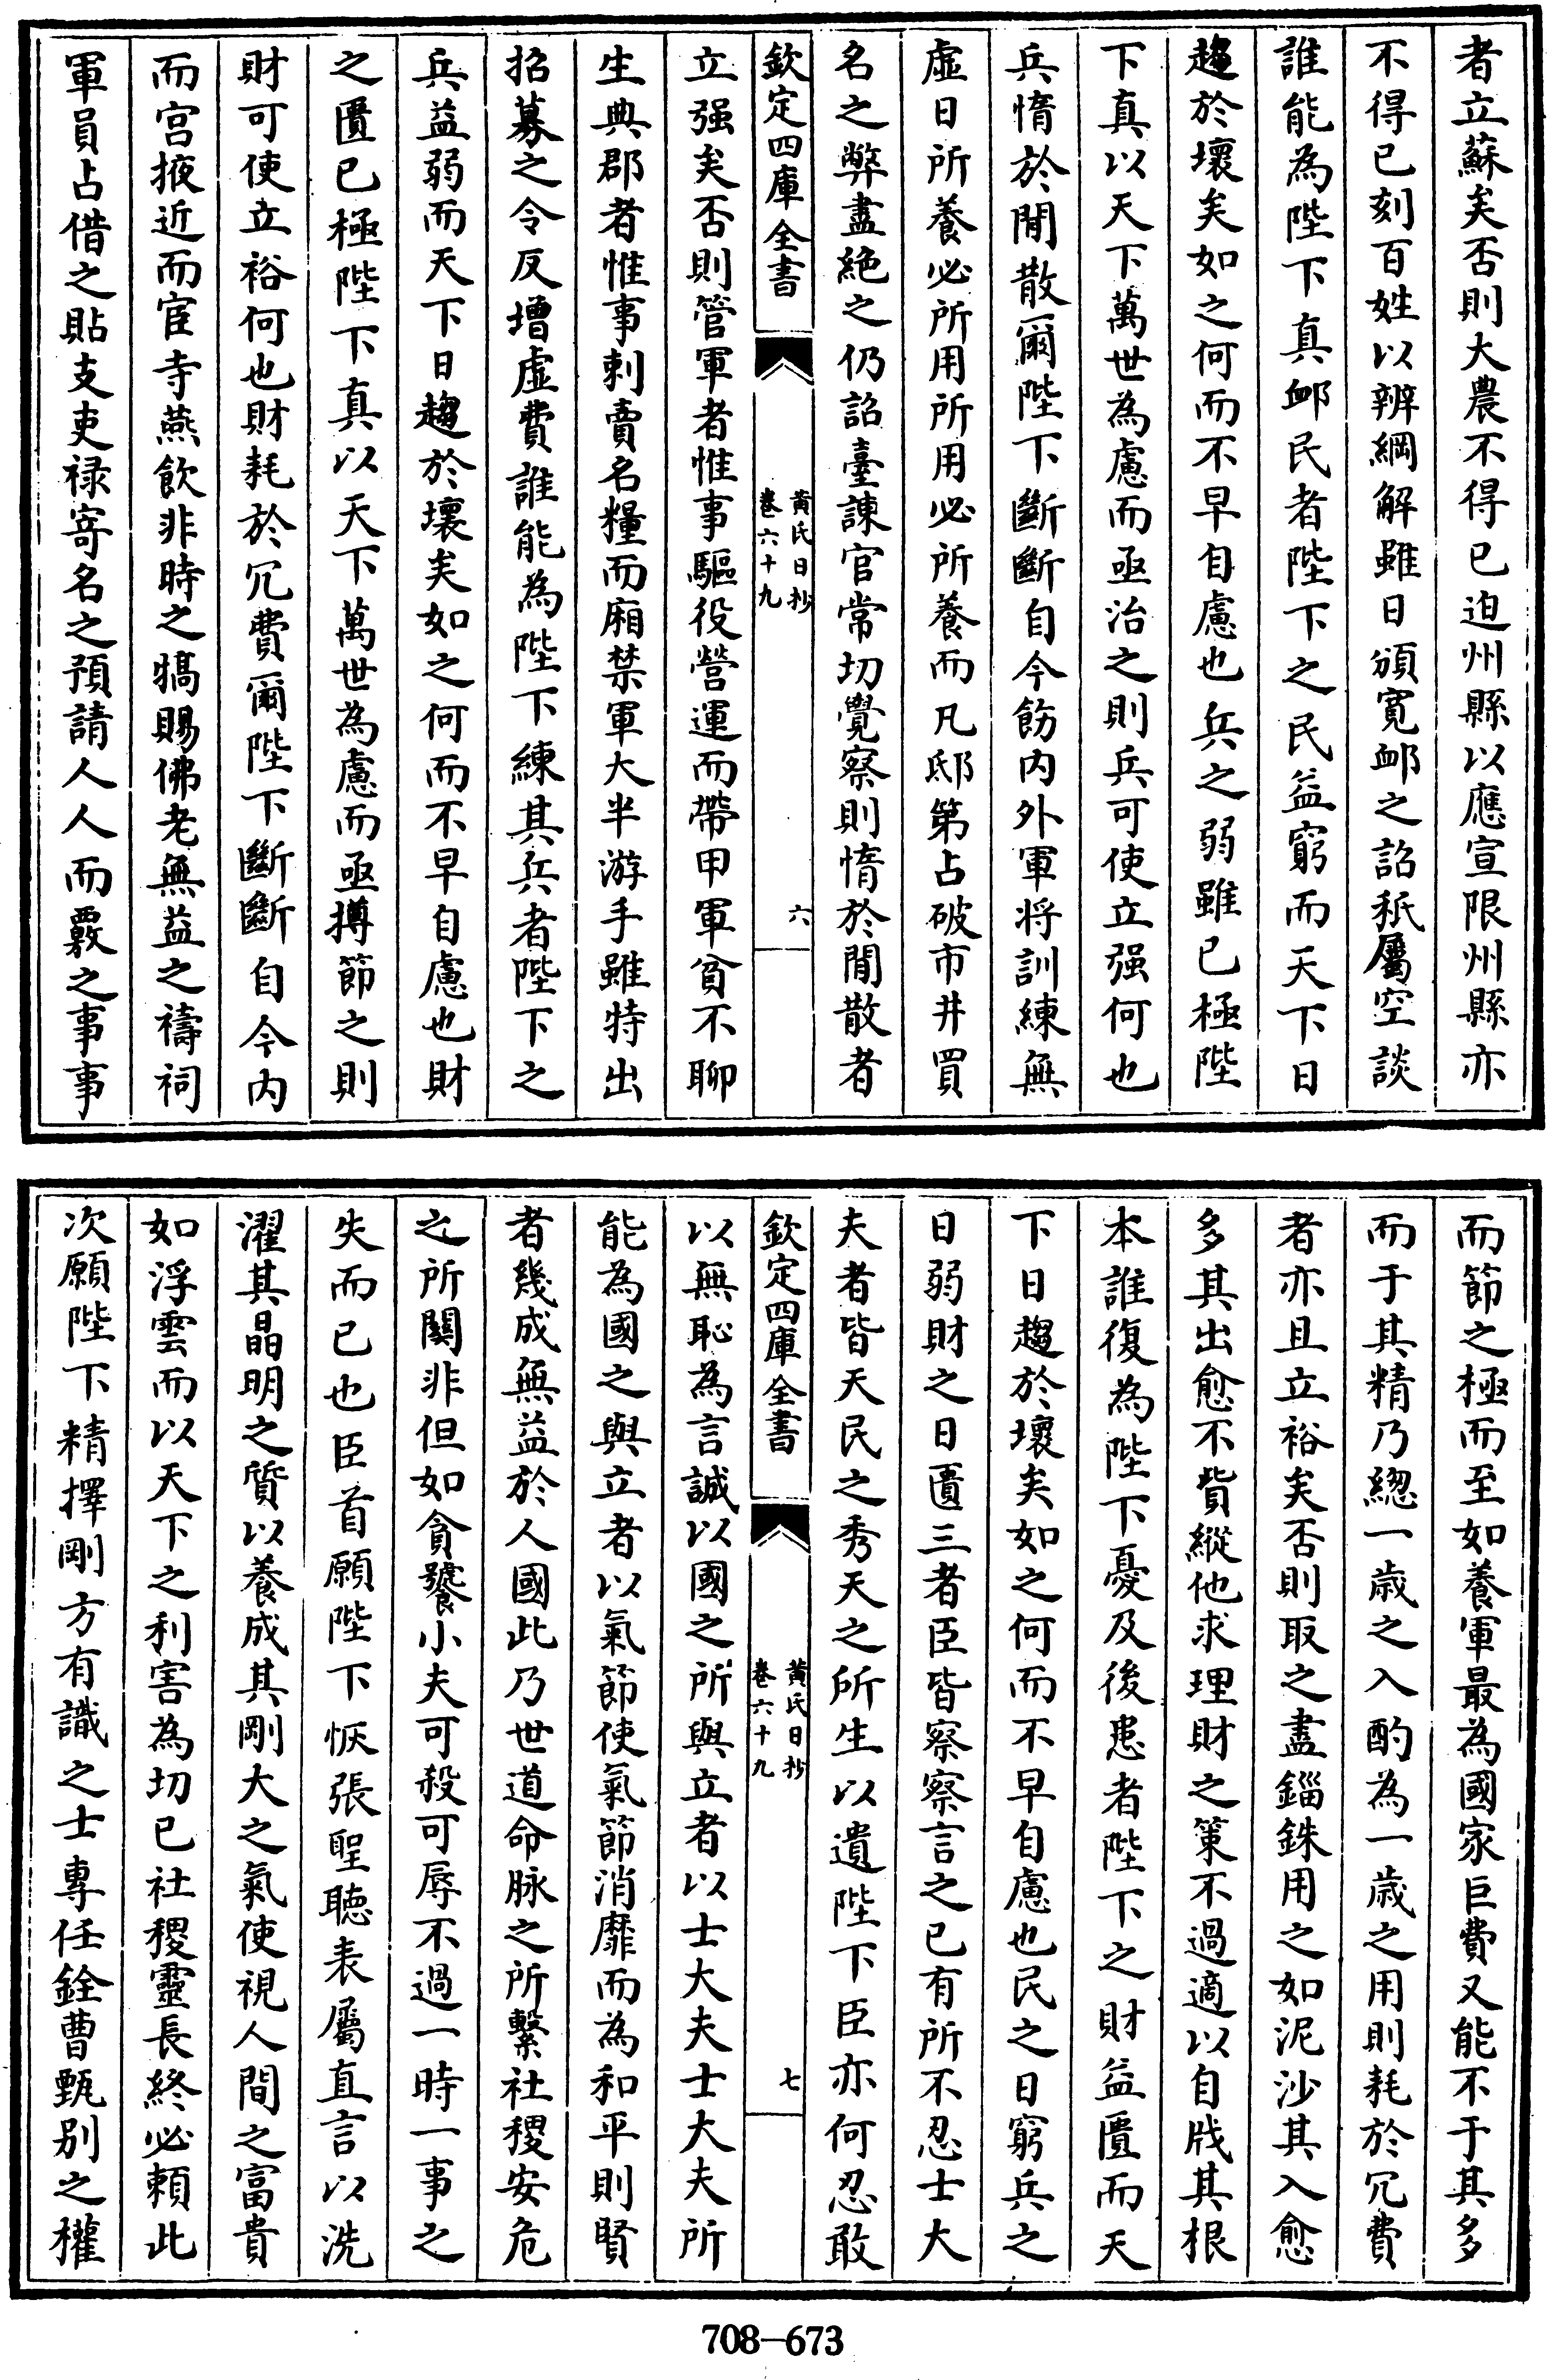 者立蘇矣否則大農不得已迫州縣以應宣限州縣亦
不得已刻百姓以辨綱解雖日頒寛邺之詔秖屬空談
誰能為陛下真邺民者陛下之民益窮而天下日
趨於壞矣如之何而不早自慮也兵之弱雖已極陛
下真以天下萬世為慮而亟治之則兵可使立强何也
兵惰於閒散爾陛下斷斷自今飭内外軍将訓練無
虚日所養必所用所用必所養而凡邸第占破市井買
名之弊盡絶之仍詔臺諫官常切覺察則惰於閒散者
欽定四庫全書
黄氏日抄
卷六十九
六
立强矣否則管軍者惟事驅役營運而帶甲軍貧不聊
生典郡者惟事刺賣名糧而廂禁軍大半游手雖特出
招募之令反增虚費誰能為陛下練其兵者陛下之
兵益弱而天下日趨於壞矣如之何而不早自慮也財
之匱已極陛下真以天下萬世為慮而亟撙節之則
財可使立裕何也財耗於冗費爾陛下斷斷自今内
而宫掖近而宦寺燕飲非時之犒賜佛老無益之禱祠
軍員占借之貼支吏禄寄名之預請人人而覈之事事
而節之極而至如養軍最為國家巨費又能不于其多
而于其精乃緫一歲之入酌為一歲之用則耗於冗費
者亦且立裕矣否則取之盡錙銖用之如泥沙其入愈
多其出愈不貲縱他求理財之策不過適以自戕其根
本誰復為陛下憂及後患者陛下之財益匱而天
下日趨於壞矣如之何而不早自慮也民之日窮兵之
日弱財之日匱三者臣皆察察言之已有所不忍士大
夫者皆天民之秀天之所生以遺陛下臣亦何忍敢
欽定四庫全書
黄氏日抄
卷六十九
七
以無恥為言誠以國之所與立者以士大夫士大夫所
能為國之與立者以氣節使氣節消靡而為和平則賢
者幾成無益於人國此乃世道命脉之所繫社稷安危
之所關非但如貪饕小夫可殺可辱不過一時一事之
失而已也臣首願陛下恢張聖聽表屬直言以洗
濯其晶明之質以養成其剛大之氣使視人間之富貴
如浮雲而以天下之利害為切已社稷靈長終必頼此
次願陛下精擇剛方有識之士專任銓曹甄别之權
708—673